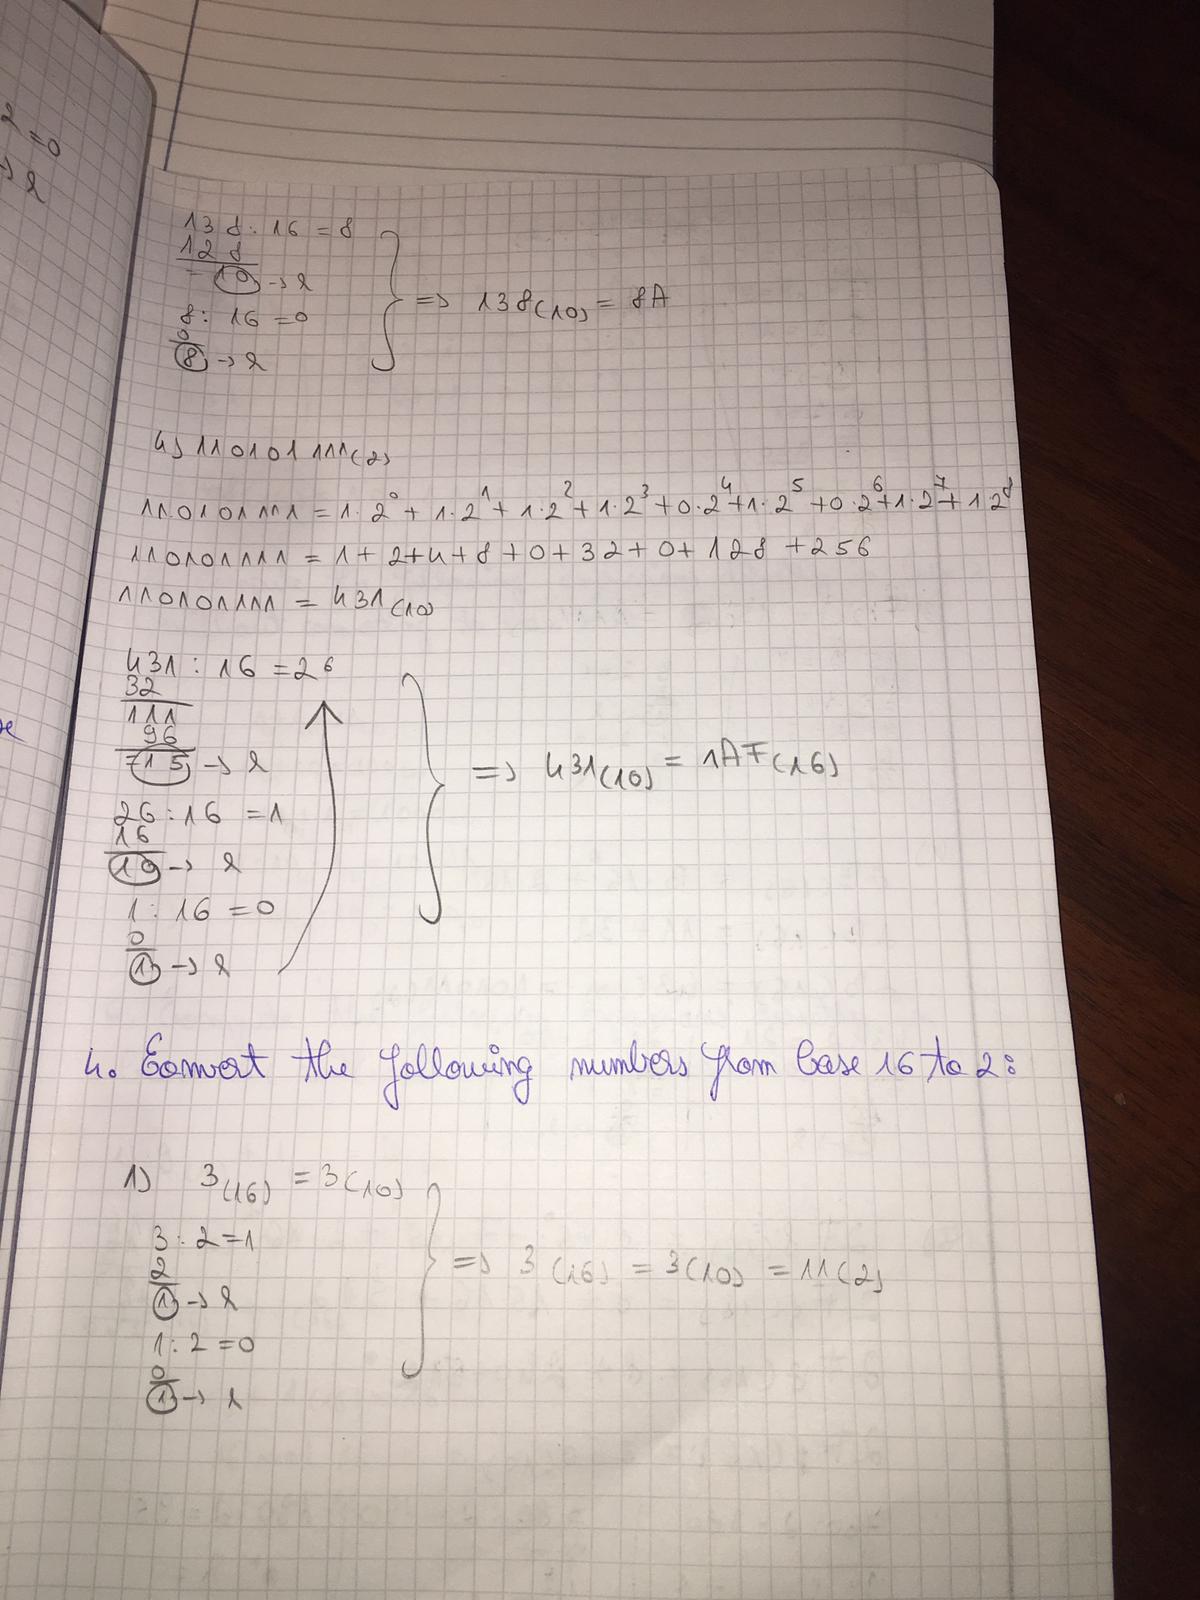 2 = 0
→ r
138 : 16 = 8
128
= 10 → r
8 : 16 = 0
0
8 → r
=> 138(10) = 8A
4) 110101111(2)
110101111 = 1·2⁰ + 1·2¹ + 1·2² + 1·2³ + 0·2⁴ + 1·2⁵ + 0·2⁶ + 1·2⁷ + 1·2⁸
110101111 = 1 + 2 + 4 + 8 + 0 + 32 + 0 + 128 + 256
110101111 = 431(10)
431 : 16 = 26
32
111
96
= 15 → r
26 : 16 = 1
16
10 → r
1 : 16 = 0
0
1 → r
=> 431(10) = 1AF(16)
4. Convert the following numbers from base 16 to 2:
1) 3(16) = 3(10)
3 : 2 = 1
2
1 → r
1 : 2 = 0
0
1 → r
=> 3(16) = 3(10) = 11(2)